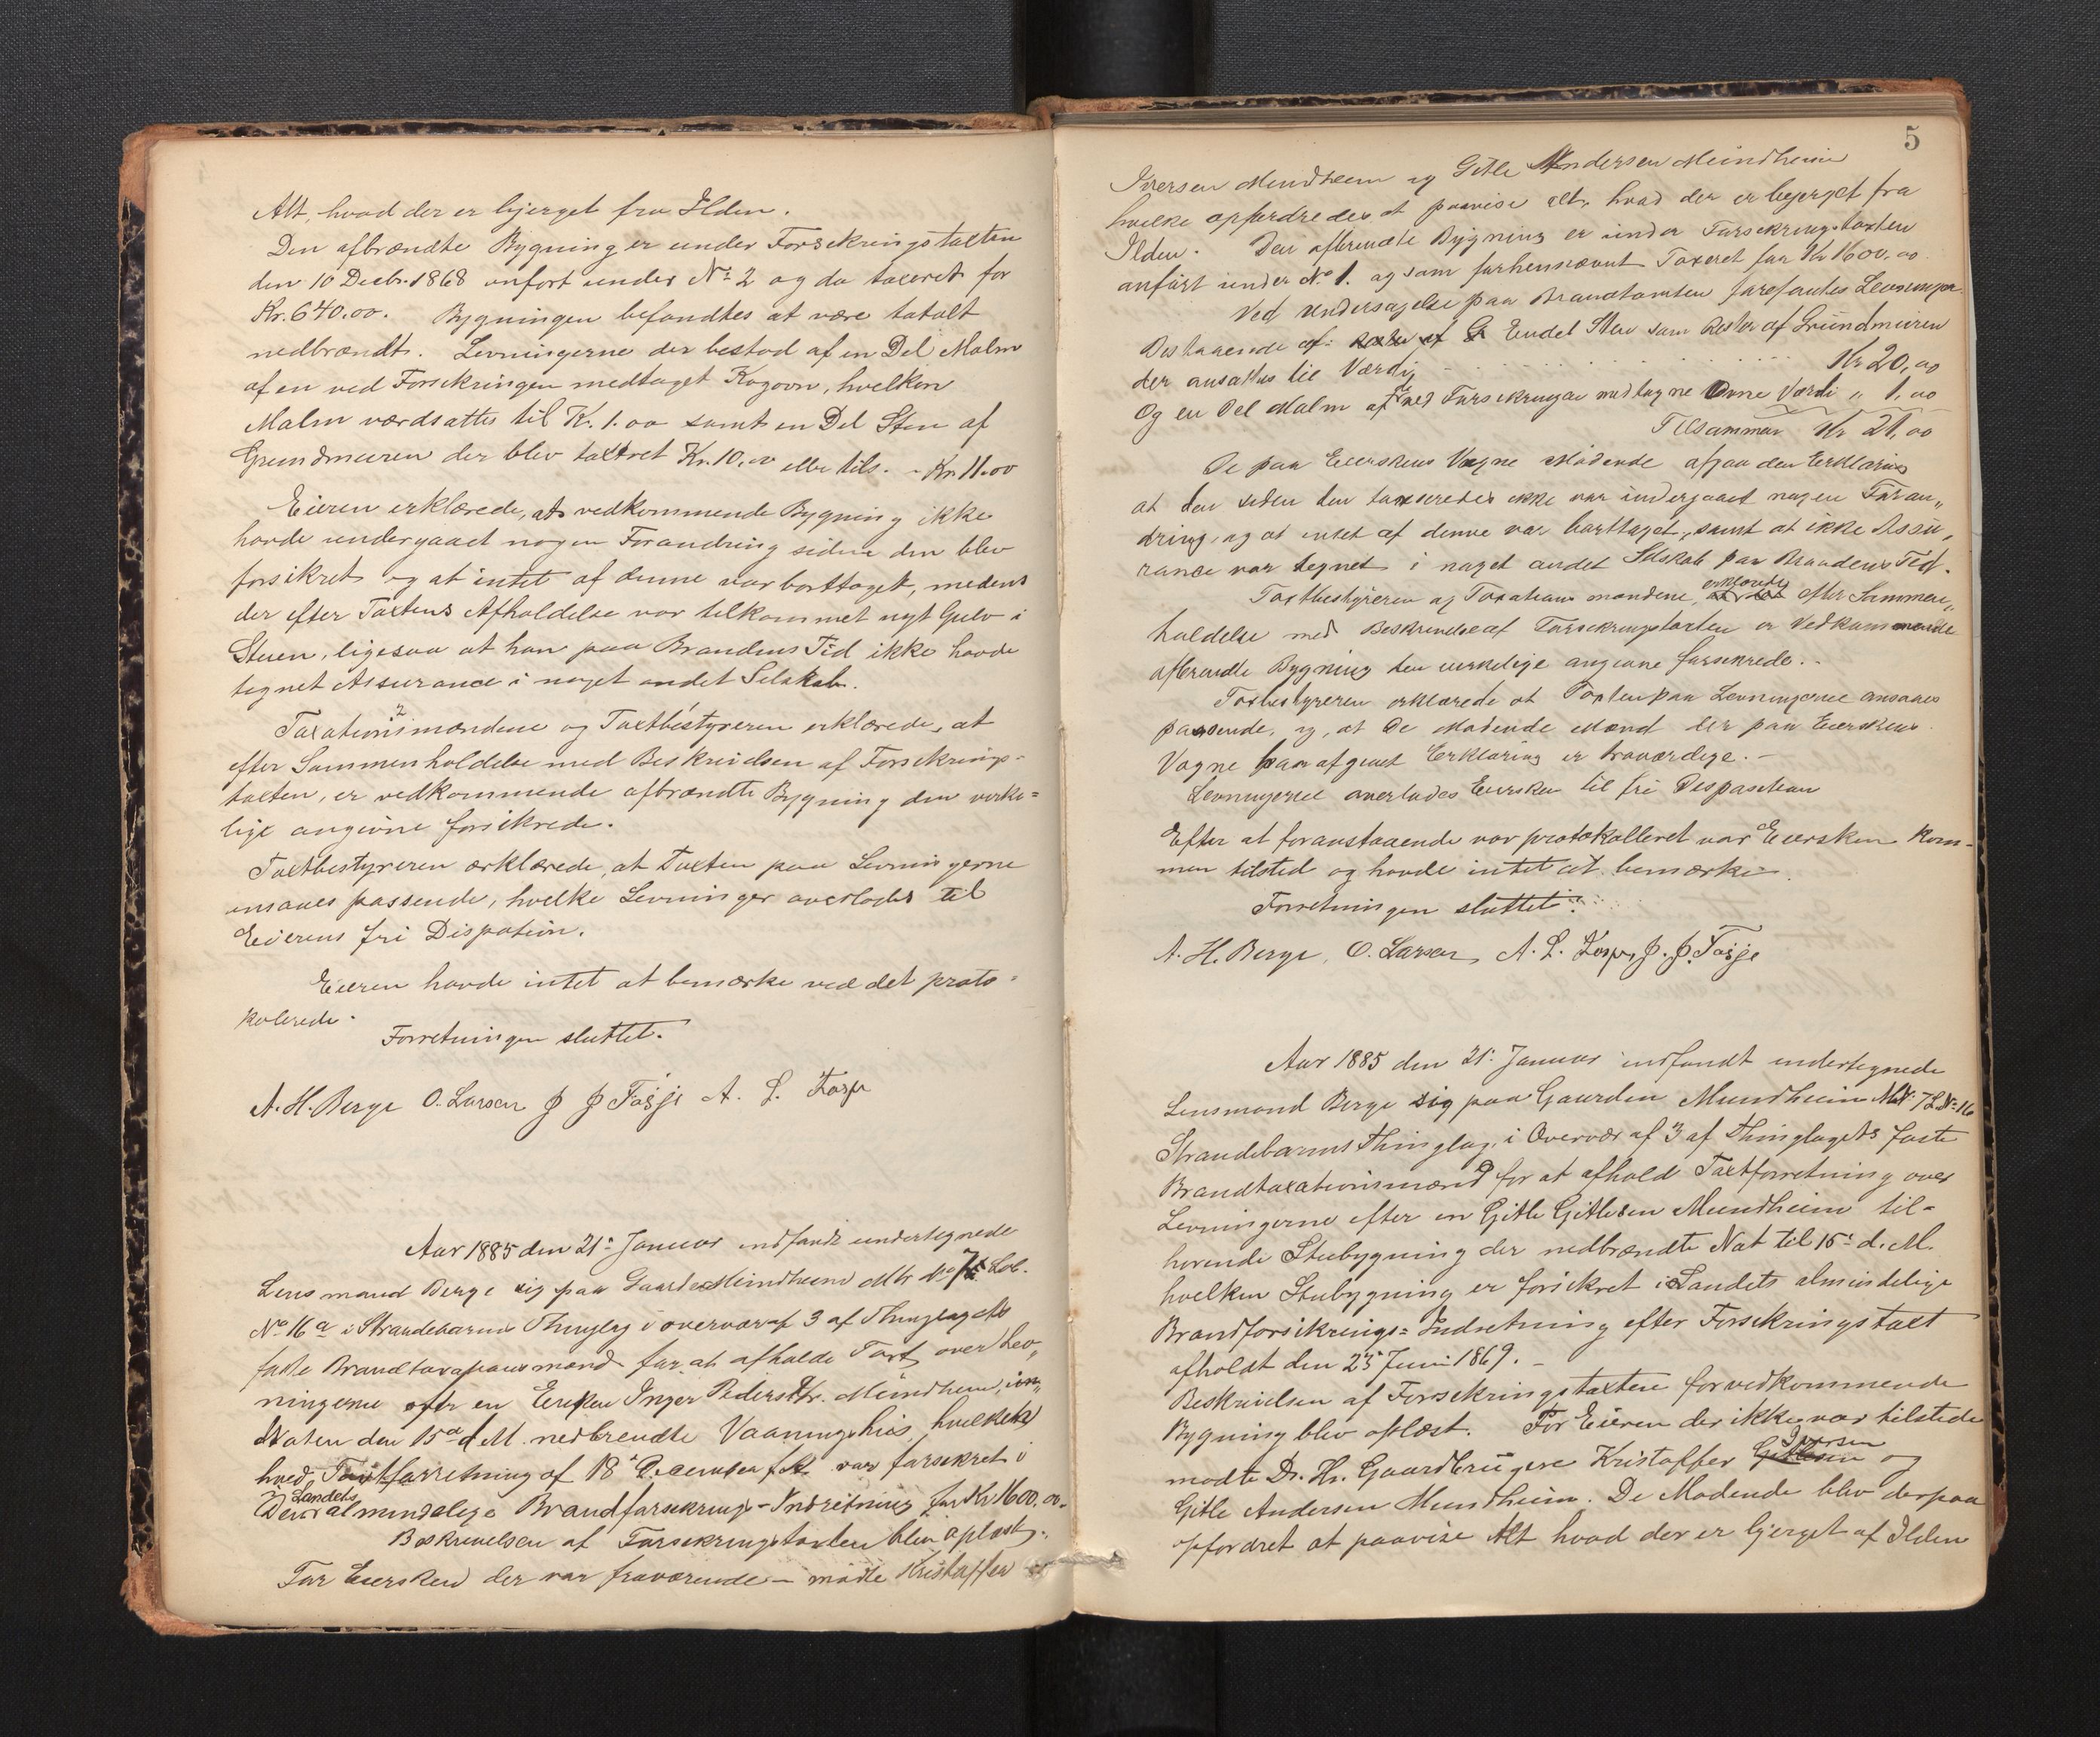 Alt, hvad der er bjerget fra Ilden.
Den afbrændte Bygning er under Forsekringstaxten
den 10 Decbr. 1868 anfort under No 2 og da taxeret for
Kr. 640.00. Bygningen befandtes at være totalt
nedbrændt. Levningerne der bestod af en Del Malm
af en ved Forsikringen medtaget Kogovn, hvelken
Malm værdsattes til K. 1.00 samt en Del Sten af
Grundmuren der blev taxtret Kr. 10,00 eller tils. - Kr. 11.00
Eieren erklærede, at vedkommende Bygning ikke
havde undergaaet nogen Forandring siden den blev
forsikret og at intet af denne var borttaget, medens
der efter Taxtens Afholdelse var telkommet nyt Gulv i
Stuen, ligesaa at han paa Brandens Tid ikke havde
tegnet Assurance i noget andet Selskab.
Taxationsmændene og Taxtbestyreren erklærede, at
efter Sammenholdelse med Beskrivelsen af Forsekrings-
taxten, er vedkommende afbrændte Bygning den verke=
lige angivne forsikrede.
Taxtbestyreren erklærede, at Taxten paa Levningerne
ansaaes passende, hvelke Levninger overlodes til
Eierens fri Dispotion.
Eieren havde intet at bemærke ved det proto=
kolerede.
Forretningen sluttet.
A. H. Berge O. Larsen J J Tøsje A. L.
Aar 1885 den 21: Januar indfandt undertegnede
Lensmand Berge sig paa Gaarden Mundheim Mtr No 7 Lob.
No 16 a i Strandebarms Thinglag i overvær af 3 af Thinglagets
faste Brandtaxations mænd for at afholde Taxt over Lev„
ningerne efter en Eiersken Inger Pedersdtr. Mundheim, im
Naten den 15de d. M. nedbrendte Vaaningshus, hvelket
hved Taxtforretning af 18 December f. A. var forsekret i
Landets
Den almindelige Brandforsekrings-Indretning for Kr 1600.00.
Beskrivelsen af Forsekringstaxten blev oplæst.
For Eiersken der var fraværende — mødte Kristoffer
5
Iversen Mundheim og Gitle Andersen Mundheim
hvilke opfordredes at paavise alt, hvad der er bejerget fra
Ilden. Den afbrendte Bygning er under Forsekringstaxten
anført under No 1. og som forhennævnt Taxeret for Kr 1600,00
Ved undersøgelse paa Brandtomten forefantes Levninger
Bestaaende af: Endel Sten som Rester af Grundmuren
der ansattes til Værdi . . . . . . Kr 20,00
Og en Del Malm af de ved Forsekringen medtagne Ovne Værdi „ 1,00
Tilsammen Kr 21,00
De paa Eierskens Vegne Mødende afgav den Erklæring
at den siden den taxseredes ikke var undergaaet nogen Foran„
dring, og at intet af denne var borttaget, samt at ikke Assu„
rance var tegnet i noget andet Selskab paa Brandens Tid.
erklærede
Taxtbestyreren og Taxations mændene, efter Sammen„
holdelse med Beskrivelse af Forsekringstaxten er Vedkommende
afbrendte Bygning den verkelige angivne forsekrede.
Taxbestyreren erklærede at Taxten paa Levningerne ansaaes
passende, og, at De Mødende Mænd der paa Eierskens
Vegne har afgivet Erklæring er troværdige. -
Levningerne overlodes Eiersken til fri Desposition
Efter at foranstaaende var protokolleret var Eiersken kom-
men tilsted og havde intet at bemærke.
Forretningen sluttet.
A. H. Berge, O. Larsen, A. L. J. J. Tøsje
Aar 1885 den 21: Januar indfandt undertegnede
Lensmand Berge sig paa Gaarden Mundheim M.No 7 L.No 16
Strandebarms Thinglag, i Overvær af 3 af Thinglagets faste
Brandtaxationsmænd for at afhold Taxtforretning over
Levningerne efter en Gitle Gitlesen Mundheim til-
horende Stubygning der nedbrændte Nat til 15: d. M.
hvelken Stubygning er forsikret i Landets almindelige
Brandforsikrings=Indretning efter Forsekringstaxt
afholdt den 23: Juni 1869. -
Beskrivelsen af Forsekringstaxten for vedkommende
Bygning blev oplæst. For Eieren der ikke var tilstede
Iversen
modte Dr. Hr. Gaardbrugere Kristoffer Gitlesen og
Gitle Andersen Mundheim. De Modende blev derpaa
opfordret at paavise Alt hvad der er bjerget af Ilden